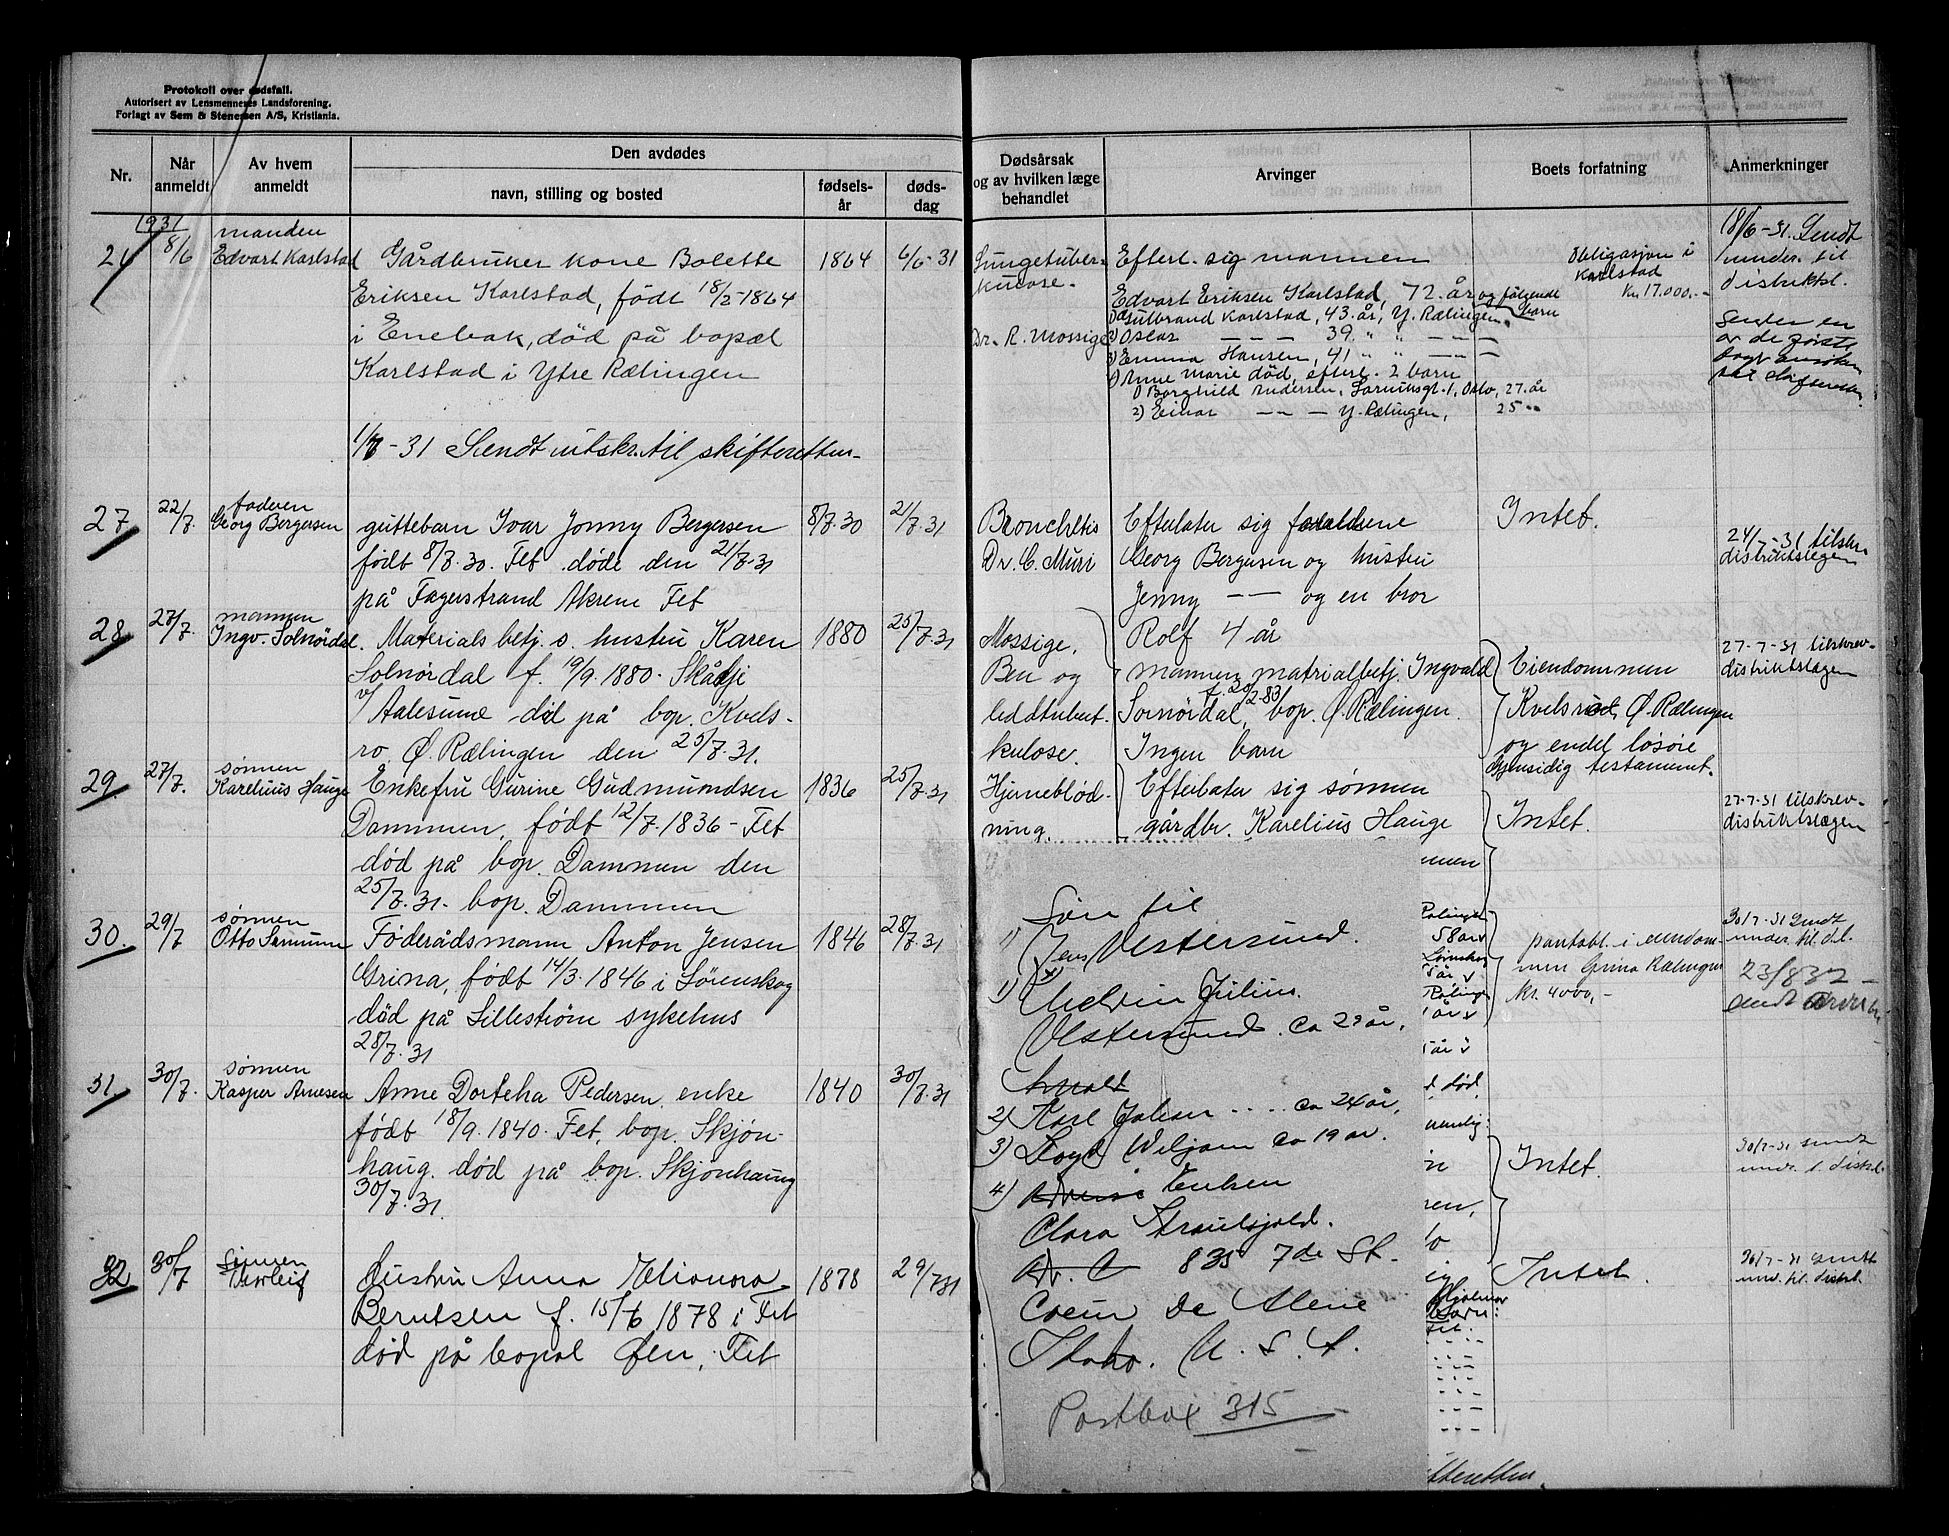 Protokoll over dødsfall.
Autorisert av Lensmennenes Landsforening.
Forlagt av Sem & Stenersen A/S, Kristiania.
Nr.
Når anmeldt
Av hvem anmeldt
Den avdødes
navn, stilling og bosted
fødsels-år
døds-dag
Dødsårsak og av hvilken læge behandlet
Arvinger
Boets forfatning
Anmerkninger
1931
8/6
manden
Edvart Karlstad
Gårdbruker kone Bolette
Eriksen Karlstad, født 18/2-1864
i Enebak, død på bopæl
Karlstad i Ytre Rælingen
1864
6/6-31
Lungetuber-
kulose.
Dr. R. Mossige
Efterl. sig mannen
Edvart Eriksen Karlstad, 72 år og følgende
barn
1) Gulbrand Karlstad, 43 år, Y. Rælingen.
2) Oskar — — — 39 " " — — —
3) Emma Hansen, 41 " " — — —
4) Anne Marie død, efterl. 2 barn
1) Borghild Andersen, 1, Oslo, 27 år
2) Einar — — — Y. Rælingen, 25 "
Obligasjon i
Karlstad
Kr. 17.000.-
18/6-31. Sendt
under. til
distriktsl.
1/7-31 Sendt utskr. til skifteretten-
27
22/7.
faderen
Georg Bergersen
guttebarn Ivar Jonny Bergersen
født 8/7.30. Fet døde den 21/7.31
på Fagerstrand Akrene Fet
8/7.30
21/7.31
Bronchitis
Dr. C. Muri
Efterlater sig forældrene
Georg Bergersen og hustru
Jenny — — og en bror
Rolf 4 år
Intet.
24/7-31 tilskr.
distriktslegen
28
27/7.
mannen
Ingv. Solnördal.
Materialsbetj. s. hustru Karen
Solnördal f. 19/9.1880. Skådje
v/ Aalesund død på bop. Kvels-
ro Ø. Rælingen den 25/7.31.
1880
25/7.31
Mossige,
Ben og
leddtuber-
kulose.
mannen matrialbetj. Ingvald
Solnördal, f. 20/2-83 bop. Ø. Rælingen.
Ingen barn
Eiendommen
Kvelsro, Ø. Rælingen
og endel løsöre
Gjensidig testament.
27-7-31 tilskrev-
distriktslegen
29.
27/7.
sønnen
Karelius Hauge
Enkefru Gurine Gudmundsen
Dammen, født 12/7.1836 - Fet
død på bop. Dammen den
25/7.31. bop. Dammen
1836
25/7.31
Hjerneblød-
ning.
Efterlater sig sønnen
gårdbr. Karelius Hauge
Intet.
27-7-31 tilskrev-
distriktslegen
30.
29/7
sønnen
Føderådsmann Anton Jensen
Grina, født 14/3.1846 i Lörenskog
død på Lillestrøm sykehus
28/7.31
1846
28/7.31
pantobl. i eiendom-
men Grina Rælingen
kr. 4000,-
30/7-31 Sendt
under. til d.l.
31.
30/7.
sønnen
Kasper Arnesen
Anne Dorthea Pedersen, enke
født 18/9.1840. Fet, bop. Skjön-
haug. død på bop. Skjönhaug
30/7.31.
1840
30/7.31
Intet.
30/7-31 sendt
under. t. distrl.
32
30/7
Hustru Anna Elionora
Berntsen f. 15/6 1878 i Fet
død på bopæl Øen, Fet
1878
29/7 31
Intet.
30/7-31 sendt
und. til distrl.
Søn til
1) Jens Vestersund.
1) Melvin Julius.
Vestersund. ca 29 år,
Arnold
2) Karl Johan .... ca 24 år,
3) Loyd Weljam ca 19 år.
4) Eriksen
Clara
835 7de St.
Coeur de Alene
Idaho. U. S. A.
Postbox 315
58 år